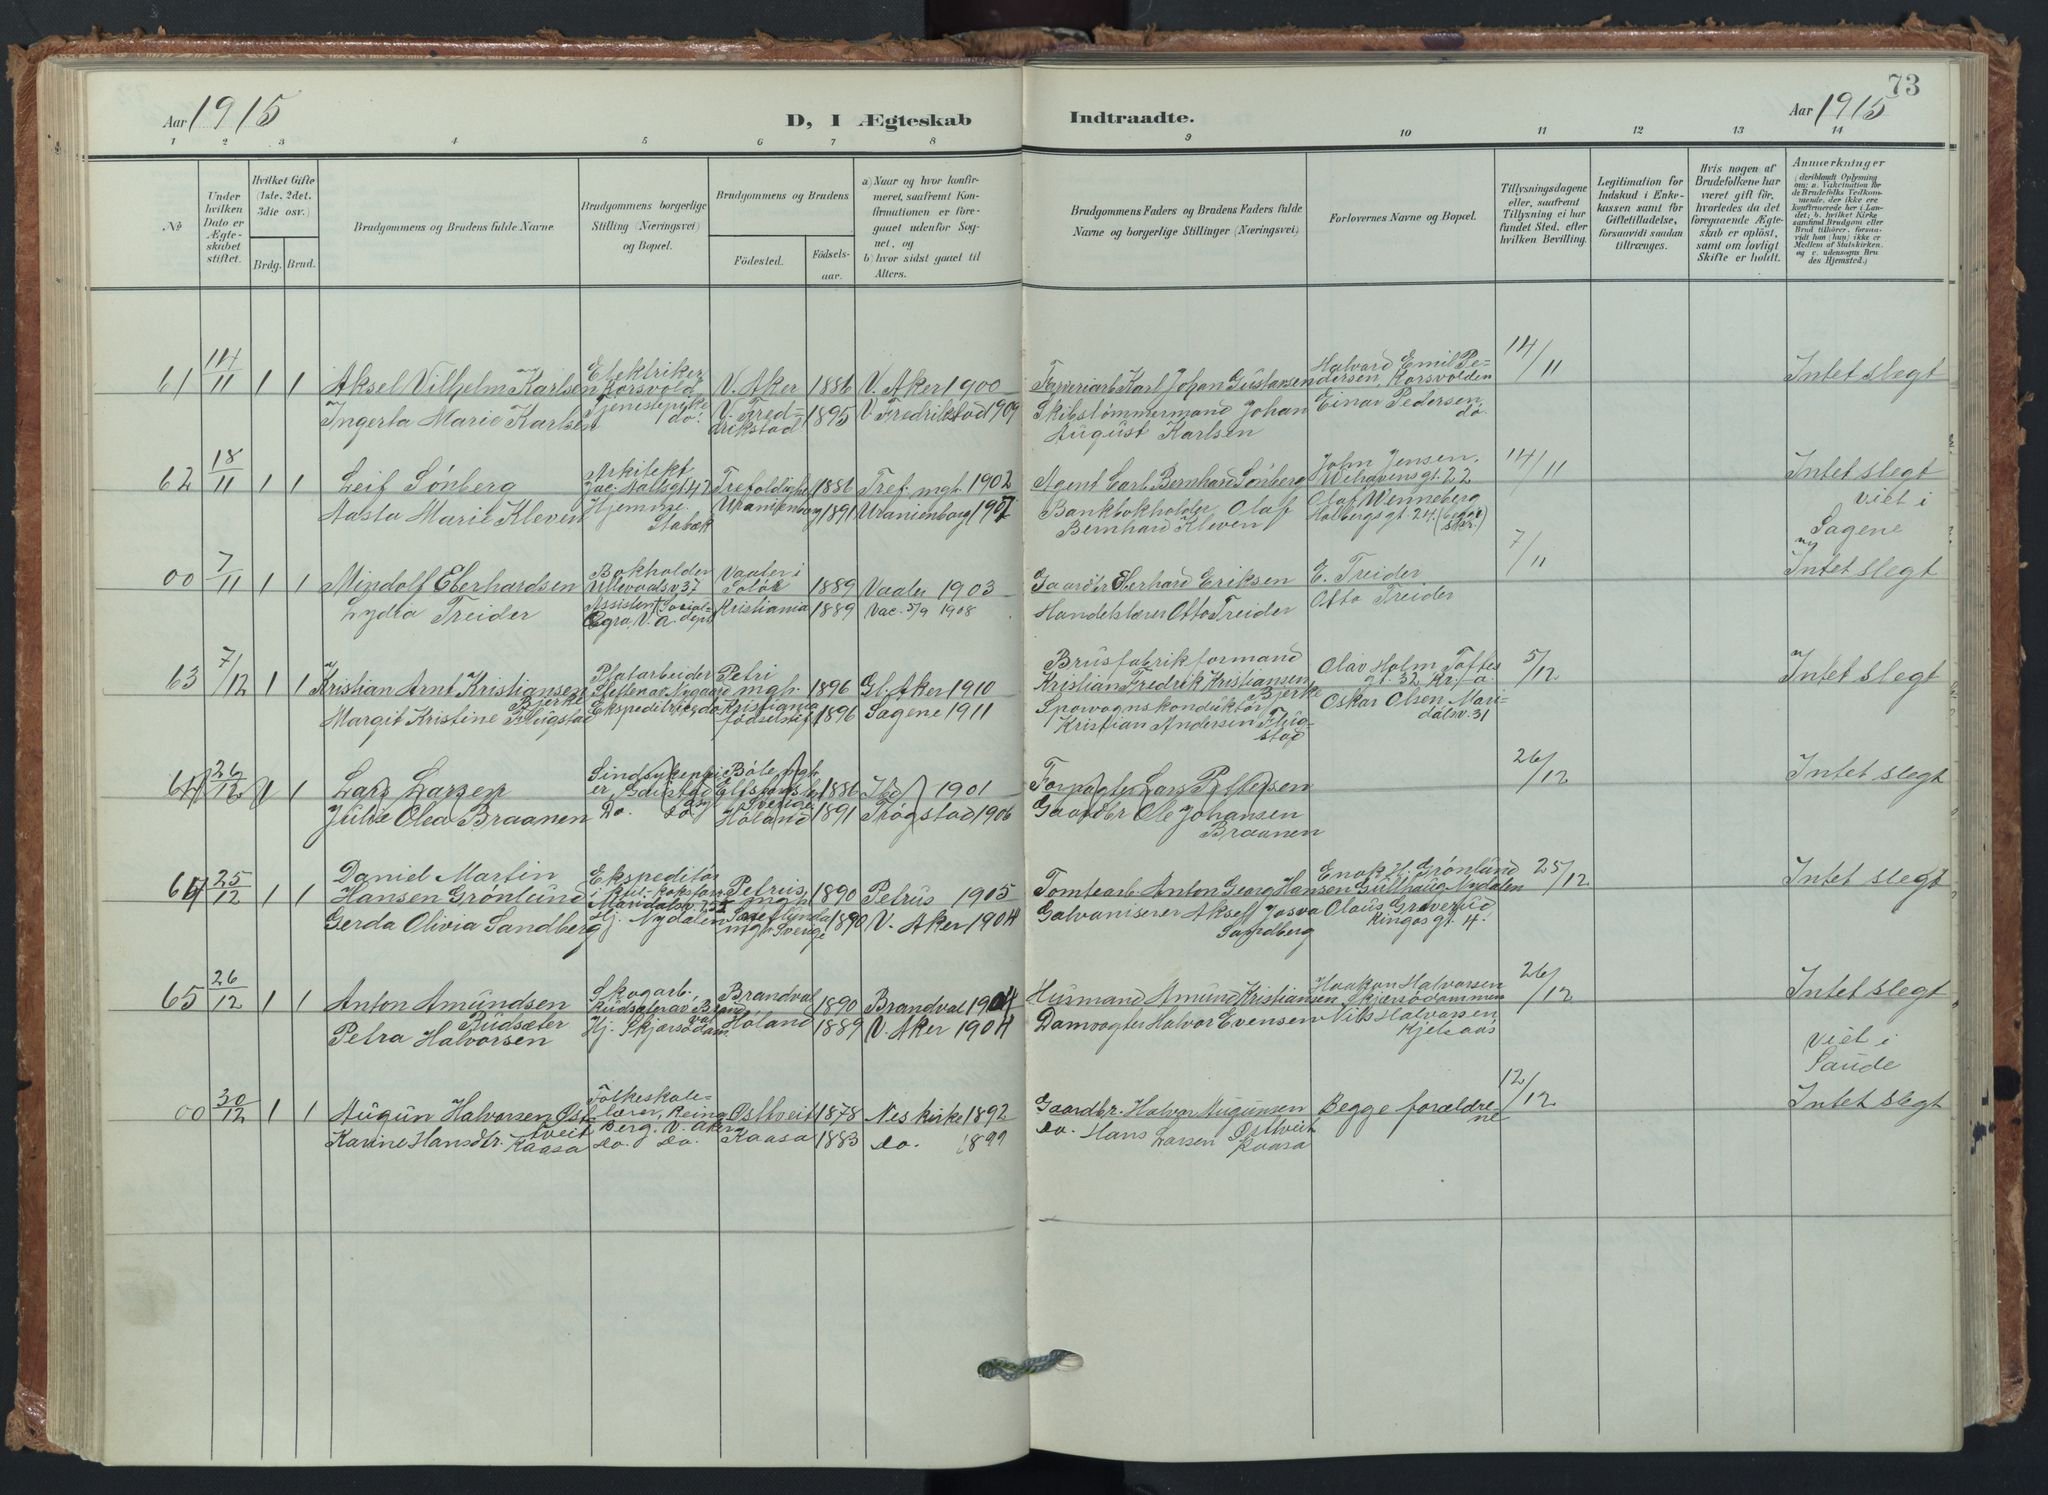 73
Aar 1915
D, I Ægteskab
Indtraadte.
Aar 1915
1 2 3 4 5 6 7 8 9 10 11 12 13 14
No
Under hvilken Dato er Ægteskabet stiftet.
Hvilket Gifte (1ste, 2det, 3die osv.)
Brdg. Brud.
Brudgommens og Brudens fulde Navne.
Brudgommens borgerlige Stilling (Næringsvei) og Bopæl.
Brudgommens og Brudens
Fødested.
Fødselsaar.
a) Naar og hvor konfirmeret, saafremt Konfirmationen er foregaaet udenfor Sognet, og
b) hvor sidst gaaet til Alters.
Brudgommens Faders og Brudens Faders fulde Navne og borgerlige Stillinger (Næringsvei).
Forlovernes Navne og Bopæl.
Tillysningsdagene eller, saafremt Tillysning ei har fundet Sted, efter hvilken Bevilling.
Legitimation for Indskud i Enkekassen samt for Giftetilladelse, forsaavidt saadan tiltrænges.
Hvis nogen af Brudefolkene har været gift før, hvorledes da det foregaaende Ægteskab er opløst, samt om lovligt Skifte er holdt.
Anmærkninger
(deriblandt Oplysning om: a. Vakcination for de Brudefolks Vedkommende, der ikke ere konfirmerede her i Landet; b. hvilket Kirkesamfund Brudgom eller Brud tilhører, forsaavidt han (hun) ikke er Medlem af Statskirken, og c. udensogns Brudes Hjemsted.)
61 14/11 1 1 Aksel Vilhelm Karlsen Elektriker Korsvold V. Aker 1886 V. Aker 1900 Karl Johan Gustavsen Halvard Emil Pedersen, Korsvolden 14/11 Intet slegt
Ingerta Marie Karlsen Tjenestepike do. V. Fredrikstad 1895 V. Fredrikstad 1909 Skibstømmermand Johan August Karlsen Einar Pedersen do.
62 18/11 1 1 Leif Sønberg Arkitekt Jac. Aallsgt 47 Trefoldigh 1886 Tref. mgh. 1902 Agent Carl Bernhard Sønberg John Jensen, Welhavensgt. 22 14/11 Intet slegt
Aasta Marie Kleven Hjemme Stabæk Uranienborg 1891 Uranienborg 1907 Bankbokholder Olaf Bernhard Kleven Olaf Wenneberg Holbergsgt. 24
viet i Sagene
00 7/11 1 1 Mindolf Eberhardsen Bokholder Ullevoldsv. 37 Vaaler i Soløk 1889 Vaaler 1903 Gaardbr Eberhard Eriksen E. Treider 7/11 Intet slegt
Lydia Treider Assistent Social-dept V. A. Kristiania 1889 Vac. 5/9 1908 Handelslærer Otto Treider Otto Treider
63 7/12 1 1 Kristian Arnt Kristiansen Bjerke Platarbeider Petri mgh. 1896 Gl. Aker 1910 Brusfabrikformand Kristian Fredrik Kristiansen Bjerke Olav Holm Toftesgt. 32 Kr. a. 5/12 Intet slegt
Margit Kristine Flugstad Ekspeditrice do Kristiania fødselstif 1896 Sagene 1911 Sporvognskonduktør Kristian Andersen Flugstad Oskar Olsen Maridalsv. 31
64 26/12 1 1 Lars Larsen Sindsykepleier Gaustad Sverige 1886 1901 Forpagter Lars Pettersen 26/12 Intet slegt
Julie Olea Braanen Do. do Høland 1891 Trøgstad 1906 Gaardbr Ole Johansen Braanen
64 25/12 1 1 Daniel Martin Hansen Grønlund Ekspeditør Petrus mgh 1890 Petrus 1905 Tomtearb. Anton Georg Hansen Enok H. Grønlund Gullhaug Nydalen 25/12 Intet slegt
Gerda Olivia Sandberg Hj. Nydalen Sverige 1890 V. Aker 1904 Galvaniserer Aksel Josva Sandberg Olaus Graverud Kingosgt. 4.
65 26/12 1 1 Anton Amundsen Rudsæter Skogarb. Brandval 1890 Brandval 1904 Husmand Amund Kristiansen Haakon Halvorsen Skjærsødammen 26/12 Intet slegt
Petra Halvorsen Hj. Skjærsødam. Høland 1889 V. Aker 1904 Damvogter Halvor Evensen Nils Halvorsen Kjelsaas
viet i Saude
00 30/12 1 1 Augun Halvorsen Østtveit Folkeskolelærer, Bergv. Aker Østtveit 1878 Nes kirke 1892 Gaardbr. Halvor Augunsen Østtveit Begge forældrene 12/12 Intet slegt
Karine Hansdtr. Kaasa do. do. Kaasa 1883 do. 1899 do. Hans Larsen Kaasa